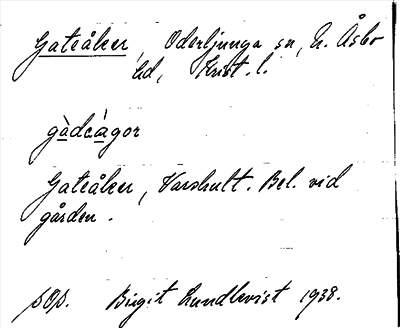 Gateåker, Oderljunga sn, N. Åsbo
hd, Krist. l.
gàdeágor
Gateåker, Varshult. Bel. vid
gården.
Birgit Lundkvist 1938.